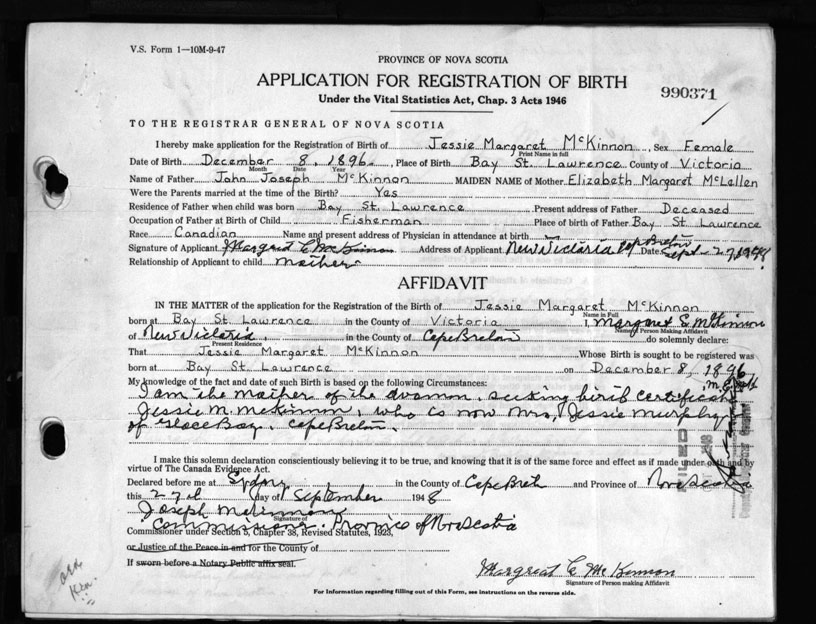 V.S. Form 1—10M-9-47
PROVINCE OF NOVA SCOTIA
APPLICATION FOR REGISTRATION OF BIRTH
990371
Under the Vital Statistics Act, Chap. 3 Acts 1946
TO THE REGISTRAR GENERAL OF NOVA SCOTIA
I hereby make application for the Registration of Birth of Jessie Margaret McKinnon, Sex Female
Print Name in full
Date of Birth December 8, 1896, Place of Birth Bay St. Lawrence County of Victoria
Month Date Year
Name of Father John Joseph McKinnon MAIDEN NAME of Mother Elizabeth Margaret McLellen
Were the Parents married at the time of the Birth? Yes
Residence of Father when child was born Bay St. Lawrence Present address of Father Deceased
Occupation of Father at Birth of Child Fisherman Place of birth of Father Bay St. Lawrence
Race Canadian Name and present address of Physician in attendance at birth —
Signature of Applicant Margreat E McKinnon Address of Applicant New Victoria Cape Breton Date Sept - 27, 1948
Relationship of Applicant to child Mother
AFFIDAVIT
IN THE MATTER of the application for the Registration of the Birth of Jessie Margaret McKinnon
Name in Full
born at Bay St. Lawrence in the County of Victoria I, Margaret E. McKinnon
Name of Person Making Affidavit
of New Victoria, in the County of Cape Breton do solemnly declare:
Present Residence
That Jessie Margaret McKinnon Whose Birth is sought to be registered was
born at Bay St. Lawrence on December 8, 1896
My knowledge of the fact and date of such Birth is based on the following Circumstances:
I am the mother of the woman, seeking birth certificate
Jessie M. McKinnon, who is now Mrs, Jessie Murphy
of Glace Bay, Cape Breton.
I make this solemn declaration conscientiously believing it to be true, and knowing that it is of the same force and effect as if made under oath and by
virtue of The Canada Evidence Act.
Declared before me at Sydney in the County of Cape Breton and Province of Nova Scotia
this 27th day of September 1948
Joseph McKinnon
Signature of
Commissioner Province of Nova Scotia
Commissioner under Section 5, Chapter 38, Revised Statutes, 1923,
or Justice of the Peace in and for the County of
If sworn before a Notary Public affix seal.
Margreat E McKinnon
Signature of Person making Affidavit
For Information regarding filling out of this Form, see instructions on the reverse side.